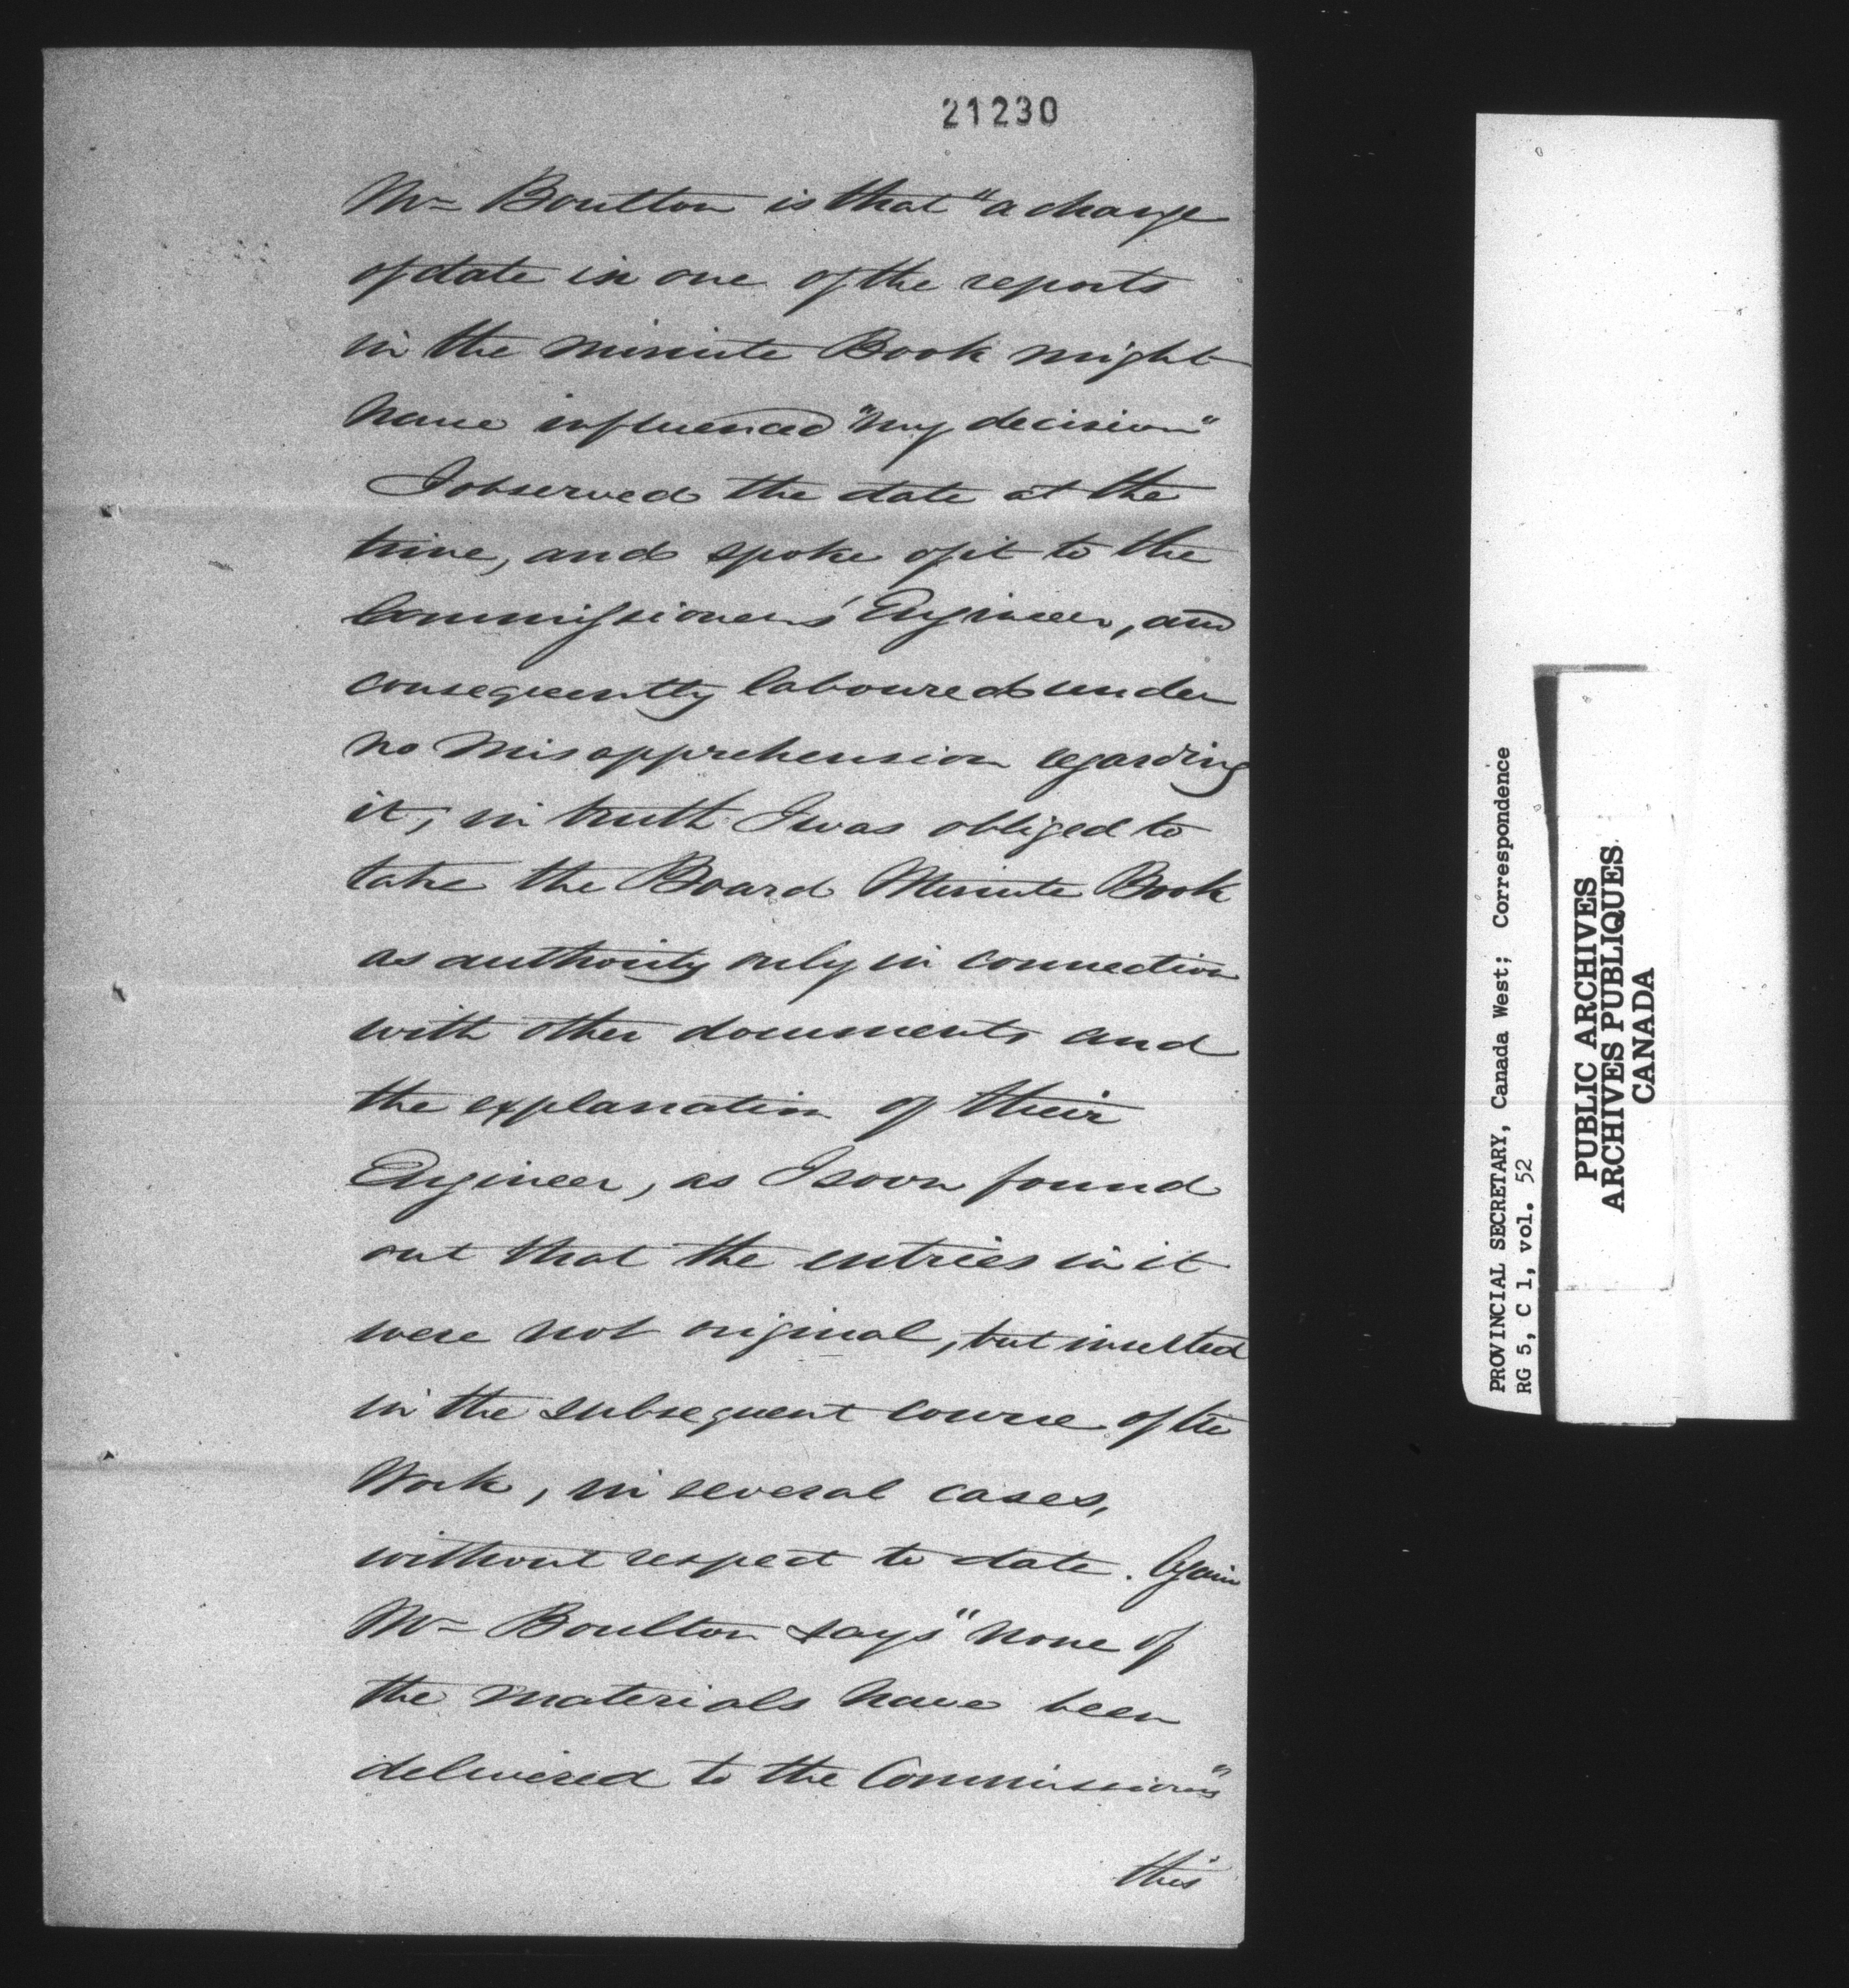 21230
Mr Boulton is that "a change
of date in one of the reports
in the minute Book might
have influenced "my decision"
I observed the date at the
time, and spoke of it to the
Commissioners' Engineer, and
consequently laboured under
no misapprehension regarding
it, in truth I was obliged to
take the Board Minute Book
as authority only in connection
with other documents and
the explanation of their
Engineer, as I soon found
out that the entries in it
were not original, but inserted
in the subsequent course of the
Work, in several cases,
without respect to date. Again
Mr Boulton says "none of
the materials have been
delivered to the Commissioners"
this
PROVINCIAL SECRETARY, Canada West; Correspondence
RG 5, C 1, vol. 52
PUBLIC ARCHIVES
ARCHIVES PUBLIQUES
CANADA